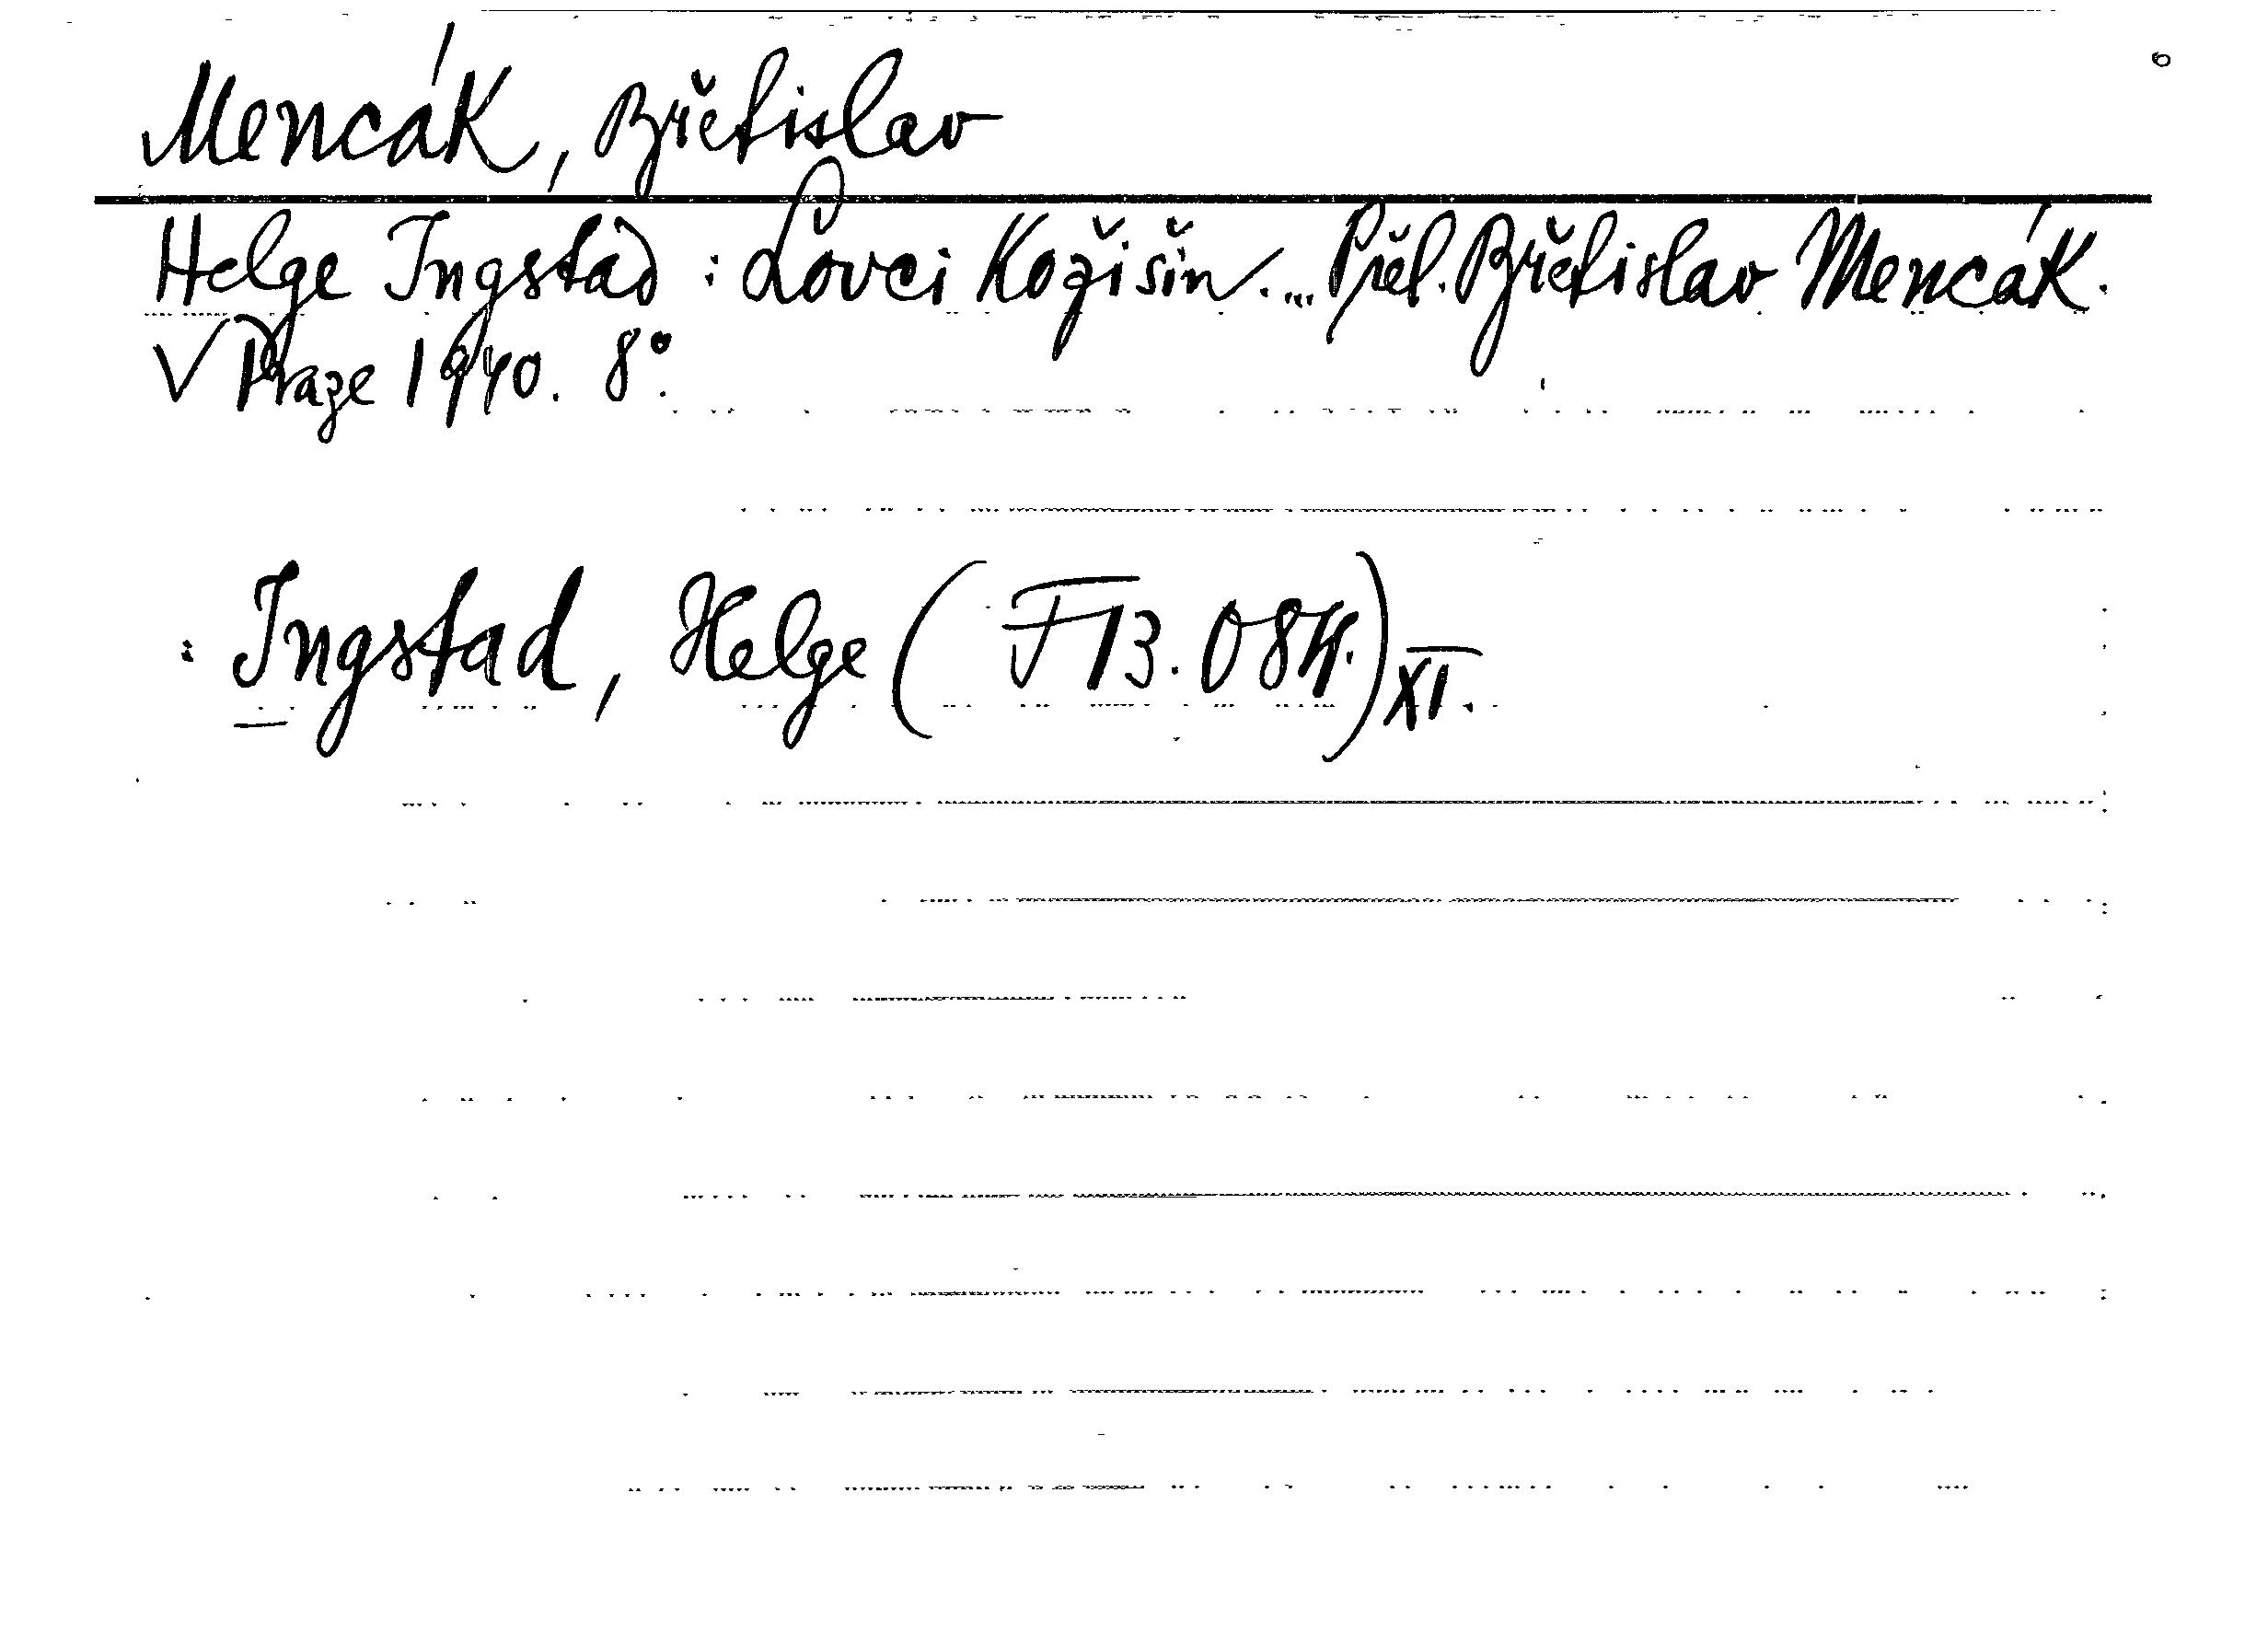 Mencák, Břetislav
Helge Ingstad : Lovci kožišin. ... Přel. Břetislav Mencák.
V Praze 1940. 8°.
: Ingstad, Helge ( F 13.084.) XI.